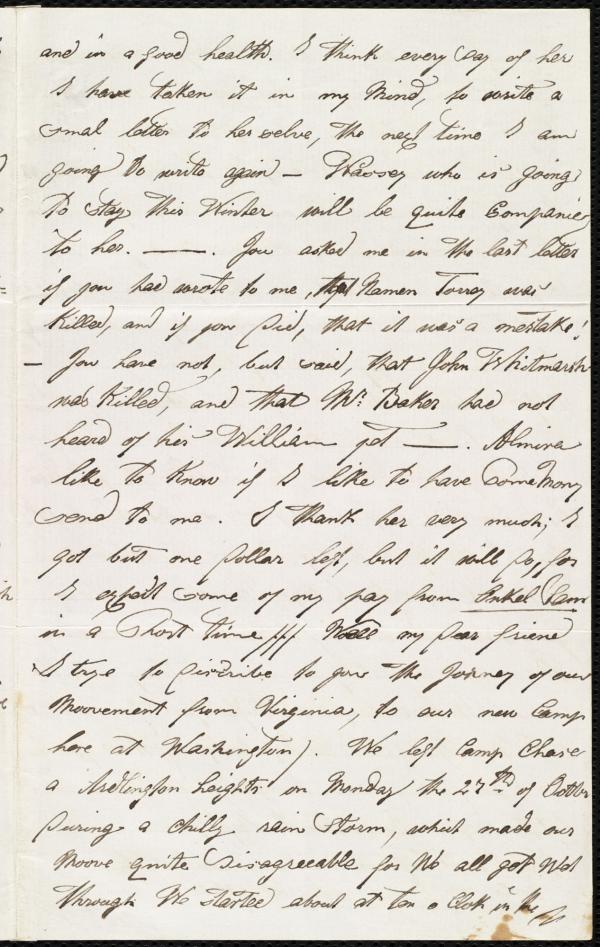 and in a good health. I think every day of her
I have taken it in my Mind, to write a
smal letter to her selve, the next time I am
going to write again — who is going
to stay this Winter will be quite Companie
to her. — . You asked me in the last letter
if you had wrote to me, that Namen Torrey was
Killed, and if you did, that it was a mestake!
— You have not, but said, that John Whitmarsh
was Killed, and that Mr. Baker had not
heard of his William yet — . Almira
like to Know if I like to have Some Mony
send to me. I thank her very much; I
got but one Dollar left, but it will do, for
I expect some of my pay from Onkel Sam
in a Short time my Dear friend
I trye to discribe to you the Jorney of our
Moovement from Virginia, to our new Camp
here at Washington). We left Camp Chase
a Ardlington heights on Monday the 27th of Octobr
During a chilly rain Storm, which made our
Moove quite disagreeable for We all got Wet
through We started about at ten o Clok in the